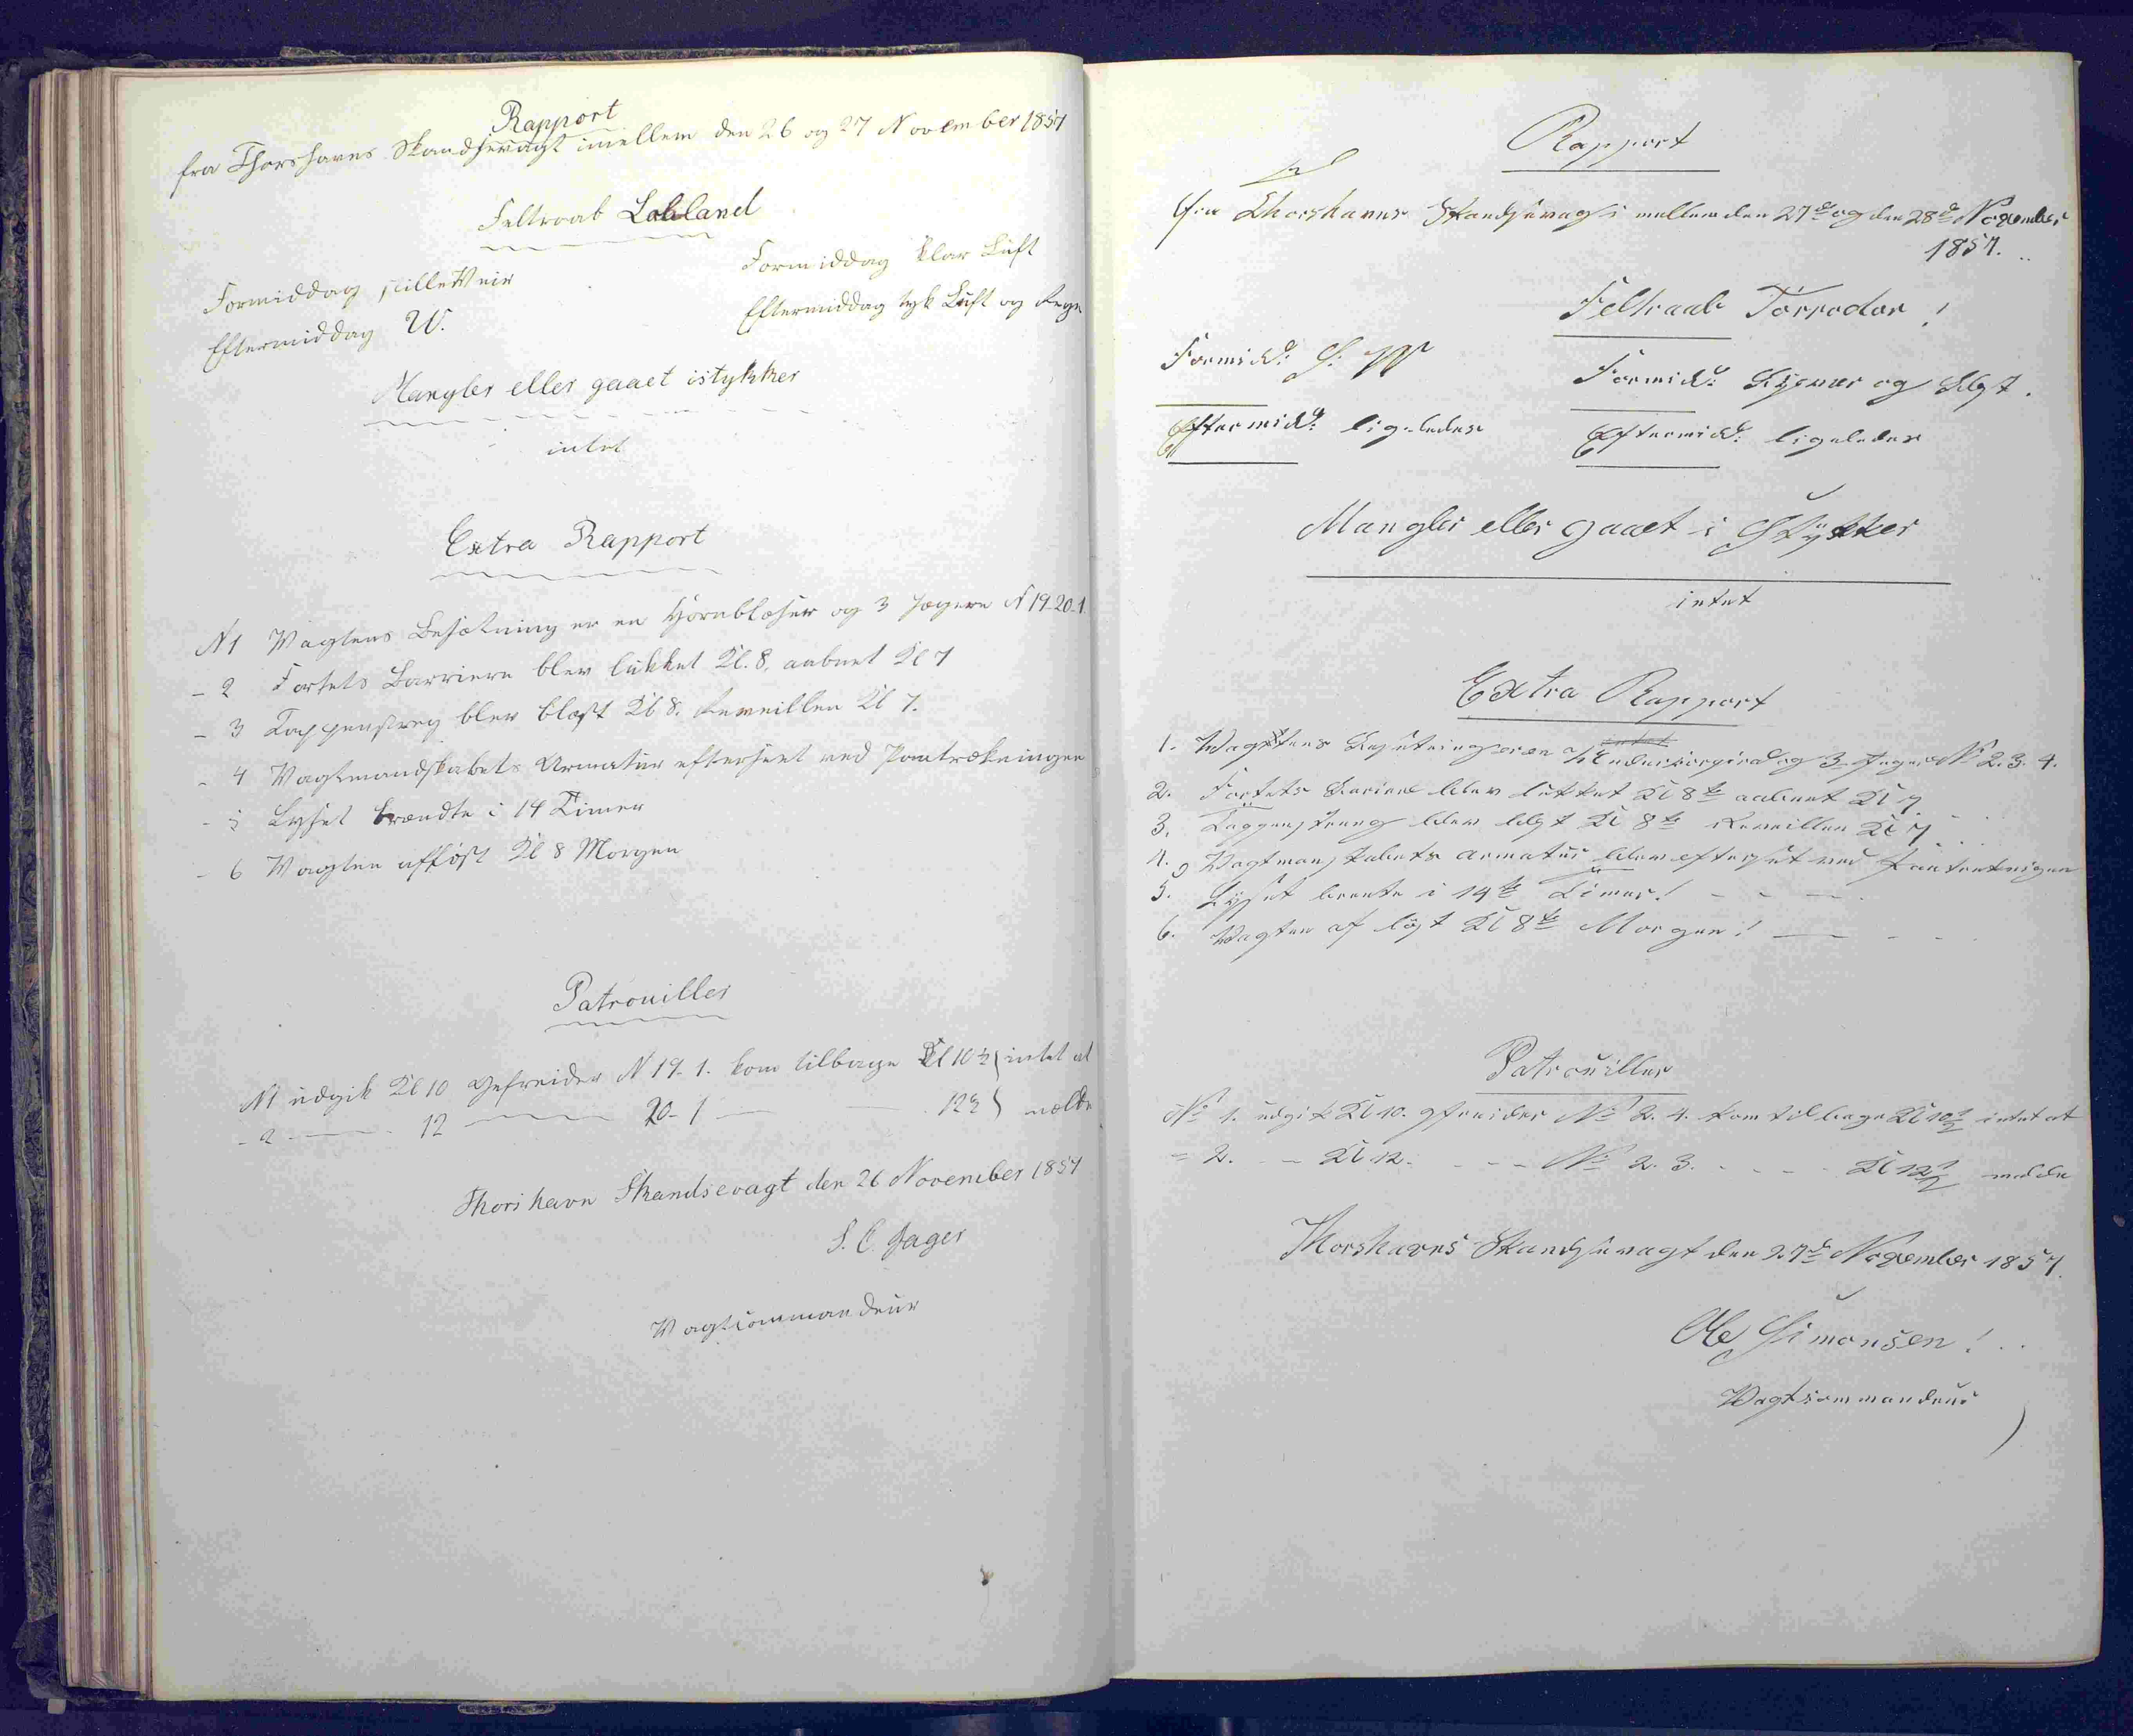 Rapport
fra Thorshavns Skandsevagt imellem den 26 og 27 November 1857
Feltraab Lolland
Formiddag stille Veir
Formiddag klar Luft
Eftermiddag W.
Eftermiddag tyk Luft og Regn
Mangler eller gaaet istykker
intet
Extra Rapport
N 1 Vagtens Besætning er en Hornblæser og 3 Jægere N 19-20-1
- 2 Fortets Barriere blev lukket Kl. 8, aabnet Kl 7
- 3 Tappenstreg blev blæst Kl 8. Reveillen Kl 7.
- 4 Vagtmandskabets Armatur efterseet ved Paatrækningen
- 5 Lyset brændte i 14 Timer
- 6 Vagten afløst Kl 8 Morgen
Patrouiller
N1 udgik Kl 10 Gefreider N 19-1. kom tilbage Kl 10½ } intet at
- 2 - 12 - 20-1 - 12½ } melde
Thorshavn Skandsevagt den 26 November 1857
S. C. Jager
Vagtcommandeur
Rapport
fra Thorshavns Skandsevagt i mellem den 27de og den 28de November
1857.
Feltraab Torrodor!
Formidd: S. W
Formidd:
Eftermidd: ligeledes
Eftermidd: ligeledes
Mangler eller gaaet i Stykker
intet
Extra Rapport
1. Vagtens Besætning er en og 3 Jæger No 2. 3. 4.
2. Fortets Bariere blev lukket Kl 8te aabnet Kl 7.
3. Tappenstreg blev blæst Kl 8te Reveillen Kl 7
4. Vagtmanskabets armatur blev efterset ved Paatrekningen
5. Lyset brente i 14te Timer!
6. Vagten af løst Kl 8te Morgen!
Patrouiller
No 1. udgik Kl 10. gfreider No 2. 4. kom tilbage Kl 10½ intet at
= 2. - Kl 12. - - - No 2. 3. - - - Kl 12½ melde
Thorshavns Skandsevagt den 27de November 1857.
Ole Simonsen!
Vagtcommandeur